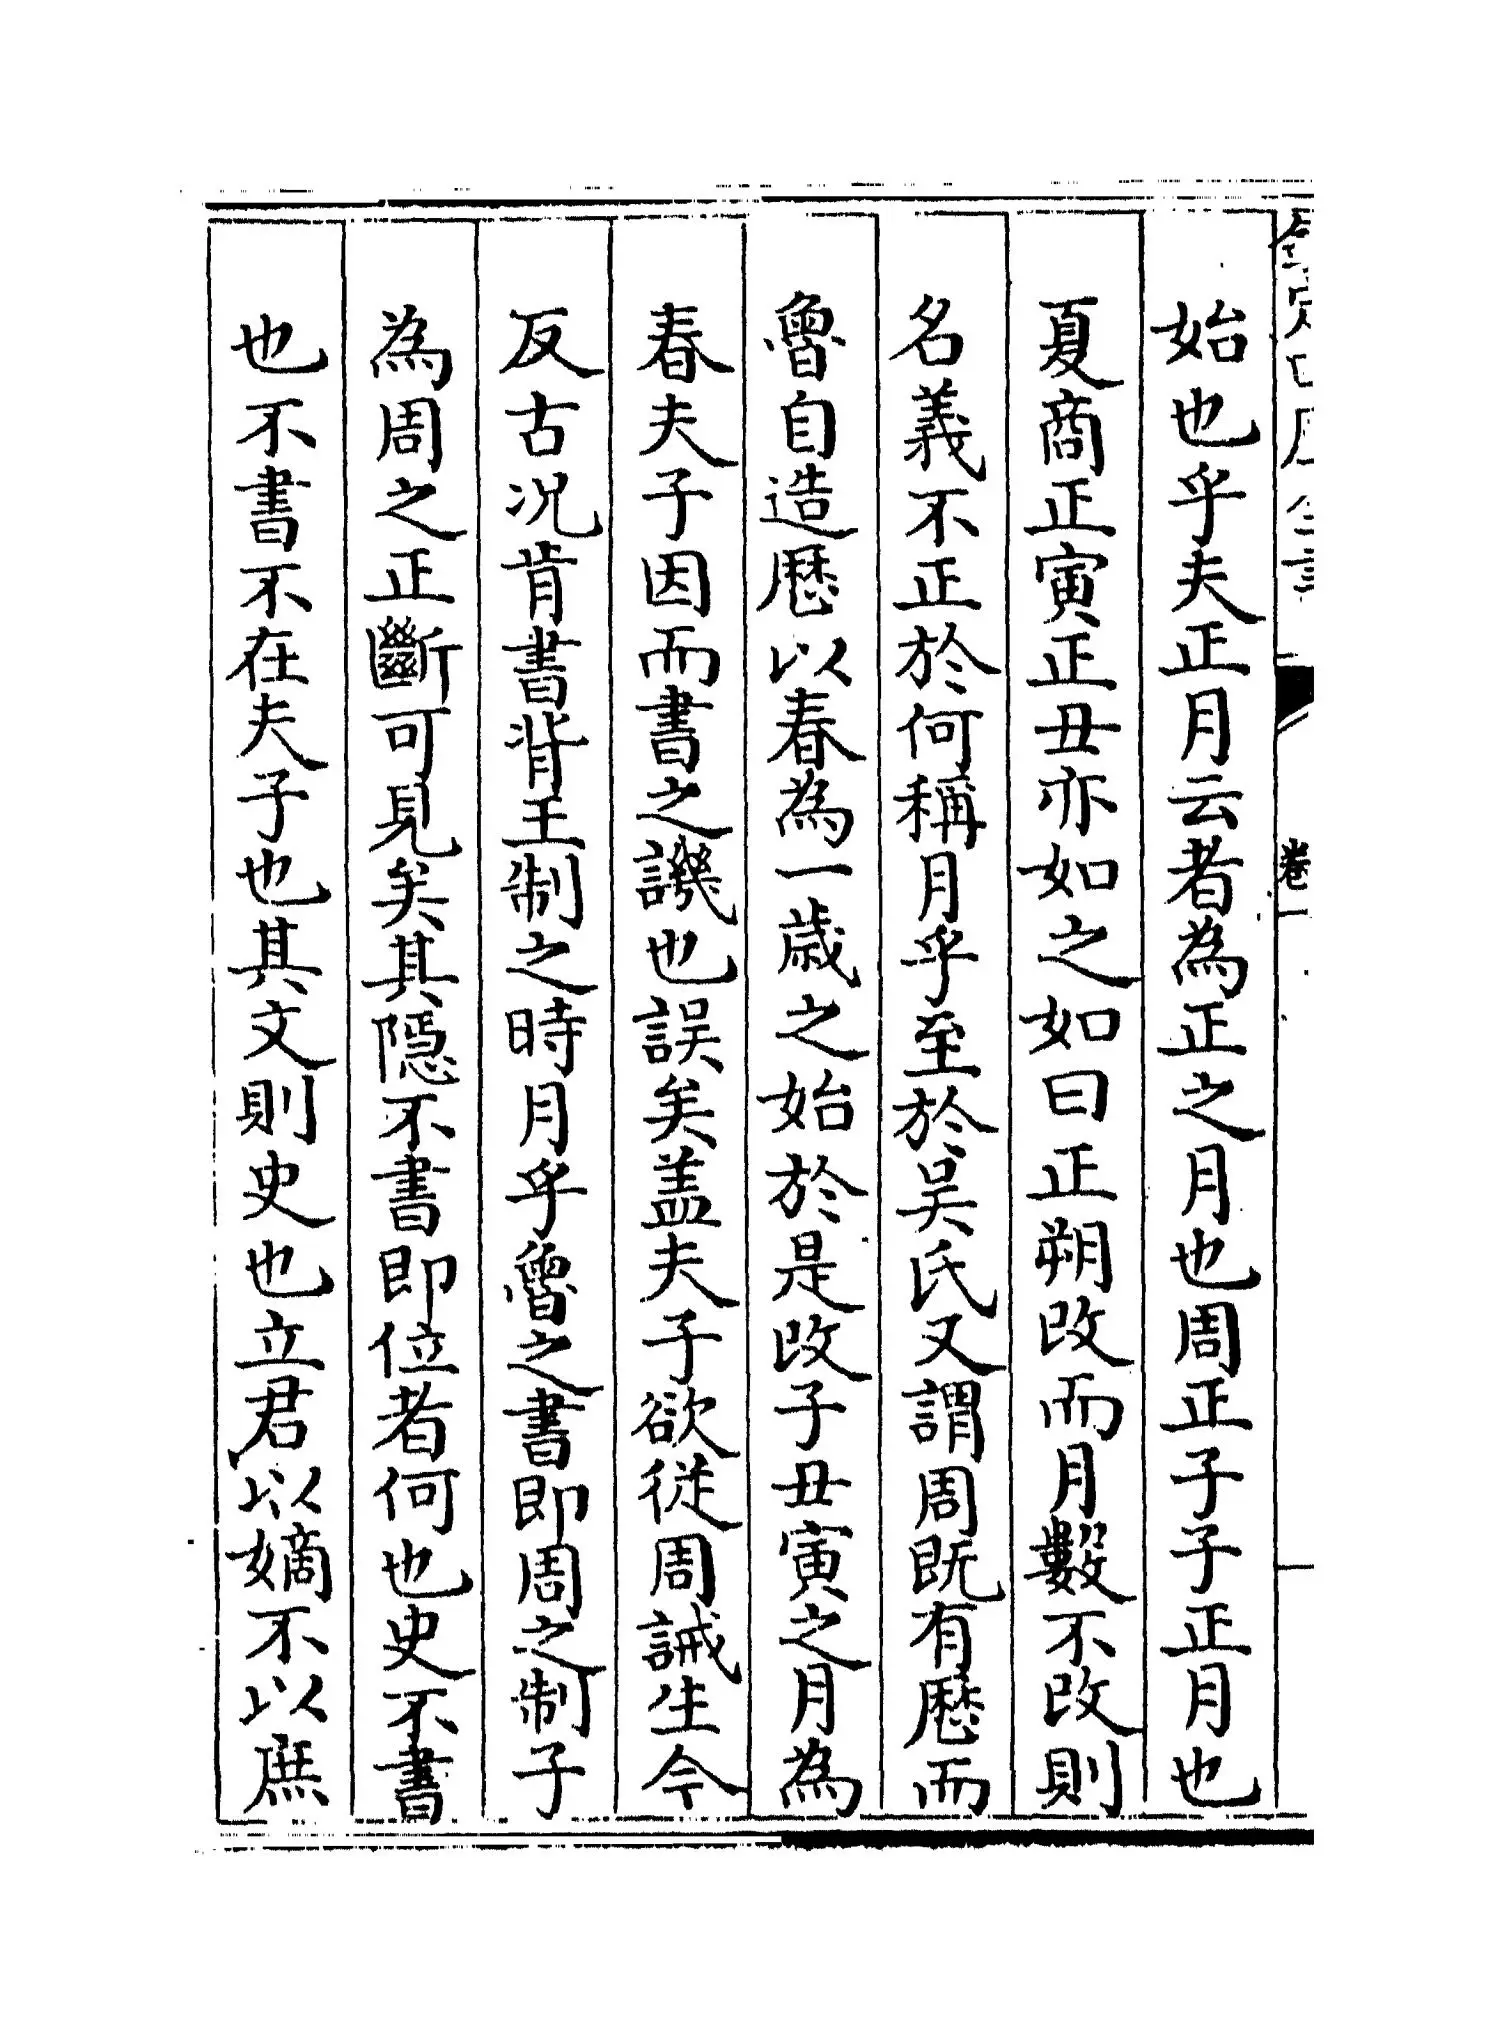 欽定四庫全書
卷一
始也乎夫正月云者為正之月也周正子子正月也
夏商正寅正丑亦如之如曰正朔改而月數不改則
名義不正於何稱月乎至於吴氏又謂周既有厯而
魯自造厯以春為一歲之始於是改子丑寅之月為
春夫子因而書之譏也誤矣盖夫子欲從周誡生今
反古况肯書背王制之時月乎魯之書即周之制子
為周之正斷可見矣其隱不書即位者何也史不書
也不書不在夫子也其文則史也立君以嫡不以庶